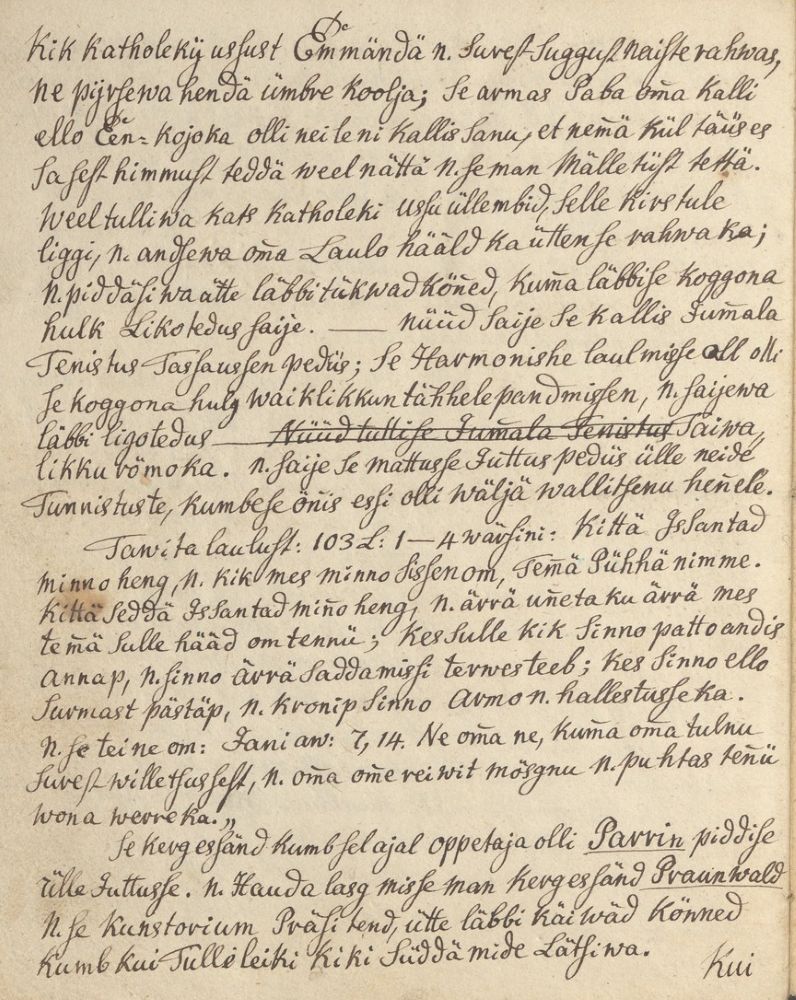 Kik Katholekij ussust Emmändä n. Surest Suggust Naisterahwas,
ne pijrsewa hendä ümbre koolja; Se armas Paba om̄a Kalli
ello Een=kojoka olli neile ni Kallis Sanu, et nem̄ä kül täüs es
sa sest himmust teddä weel nättä n. se man Mälletüst tettä.
Weel tulliwa kats Katholeki ussu üllembid, selle Kirstule
liggi, n. andsewa om̄a Laulo häält ka üttense rahwa ka;
n. piddäsiwa ütte läbbitükwad Kön̄ed, Kum̄a läbbi se koggona
hulk Likotedus saije. — Nüüd saije Se Kallis Jum̄ala
Tenistus Tassaussen peetüs; Se Harmonishe laulmisse all olli
se koggona hulg waiklikkun tähhelepandmissen, n. saijewa
läbbi ligotedus — Nüüd tulli se Jum̄ala Tenistus Taiwa,,
likku römoka. n. saije Se mattusse Juttus peetüs ülle neide
Tunnistuste, kumbe se ön̄is essi olli wäljä wallitsenu hen̄ele.
Tawita laulust: 103 L: 1—4 wärsini: Kittä Issantad
minno heng, n. kik mes minno sissen om, Tem̄ä Pühhä nimme.
Kittä Seddä Issantad min̄o heng, n. ärrä un̄eta ku ärrä mes
tem̄ä sulle hääd om tennü; Kes sulle kik sinno patto andis
annap, n. sinno ärrä saddamissi terwes teeb; Kes sinno ello
surmast pästäp, n. kronip sinno Armo n. hallestusse ka.
n. se teine om: Jani aw: 7, 14. Ne om̄a ne, kum̄a om̄a tulnu
surest willetsussest, n. om̄a om̄e reiwit mösgnu n. puhtas ten̄ü
wona werre ka.,,
Se kergessänd kumb sel ajal oppetaja olli Parrin piddise
ülle Juttusse. n. Hauda lasgmisse man kergessänd Praunwald
n. se Kunstorium Präsitend, ütte läbbi käiwäd Könned
kumb kui Tullo leiki kiki süddämide Lätsiwa.
Kui